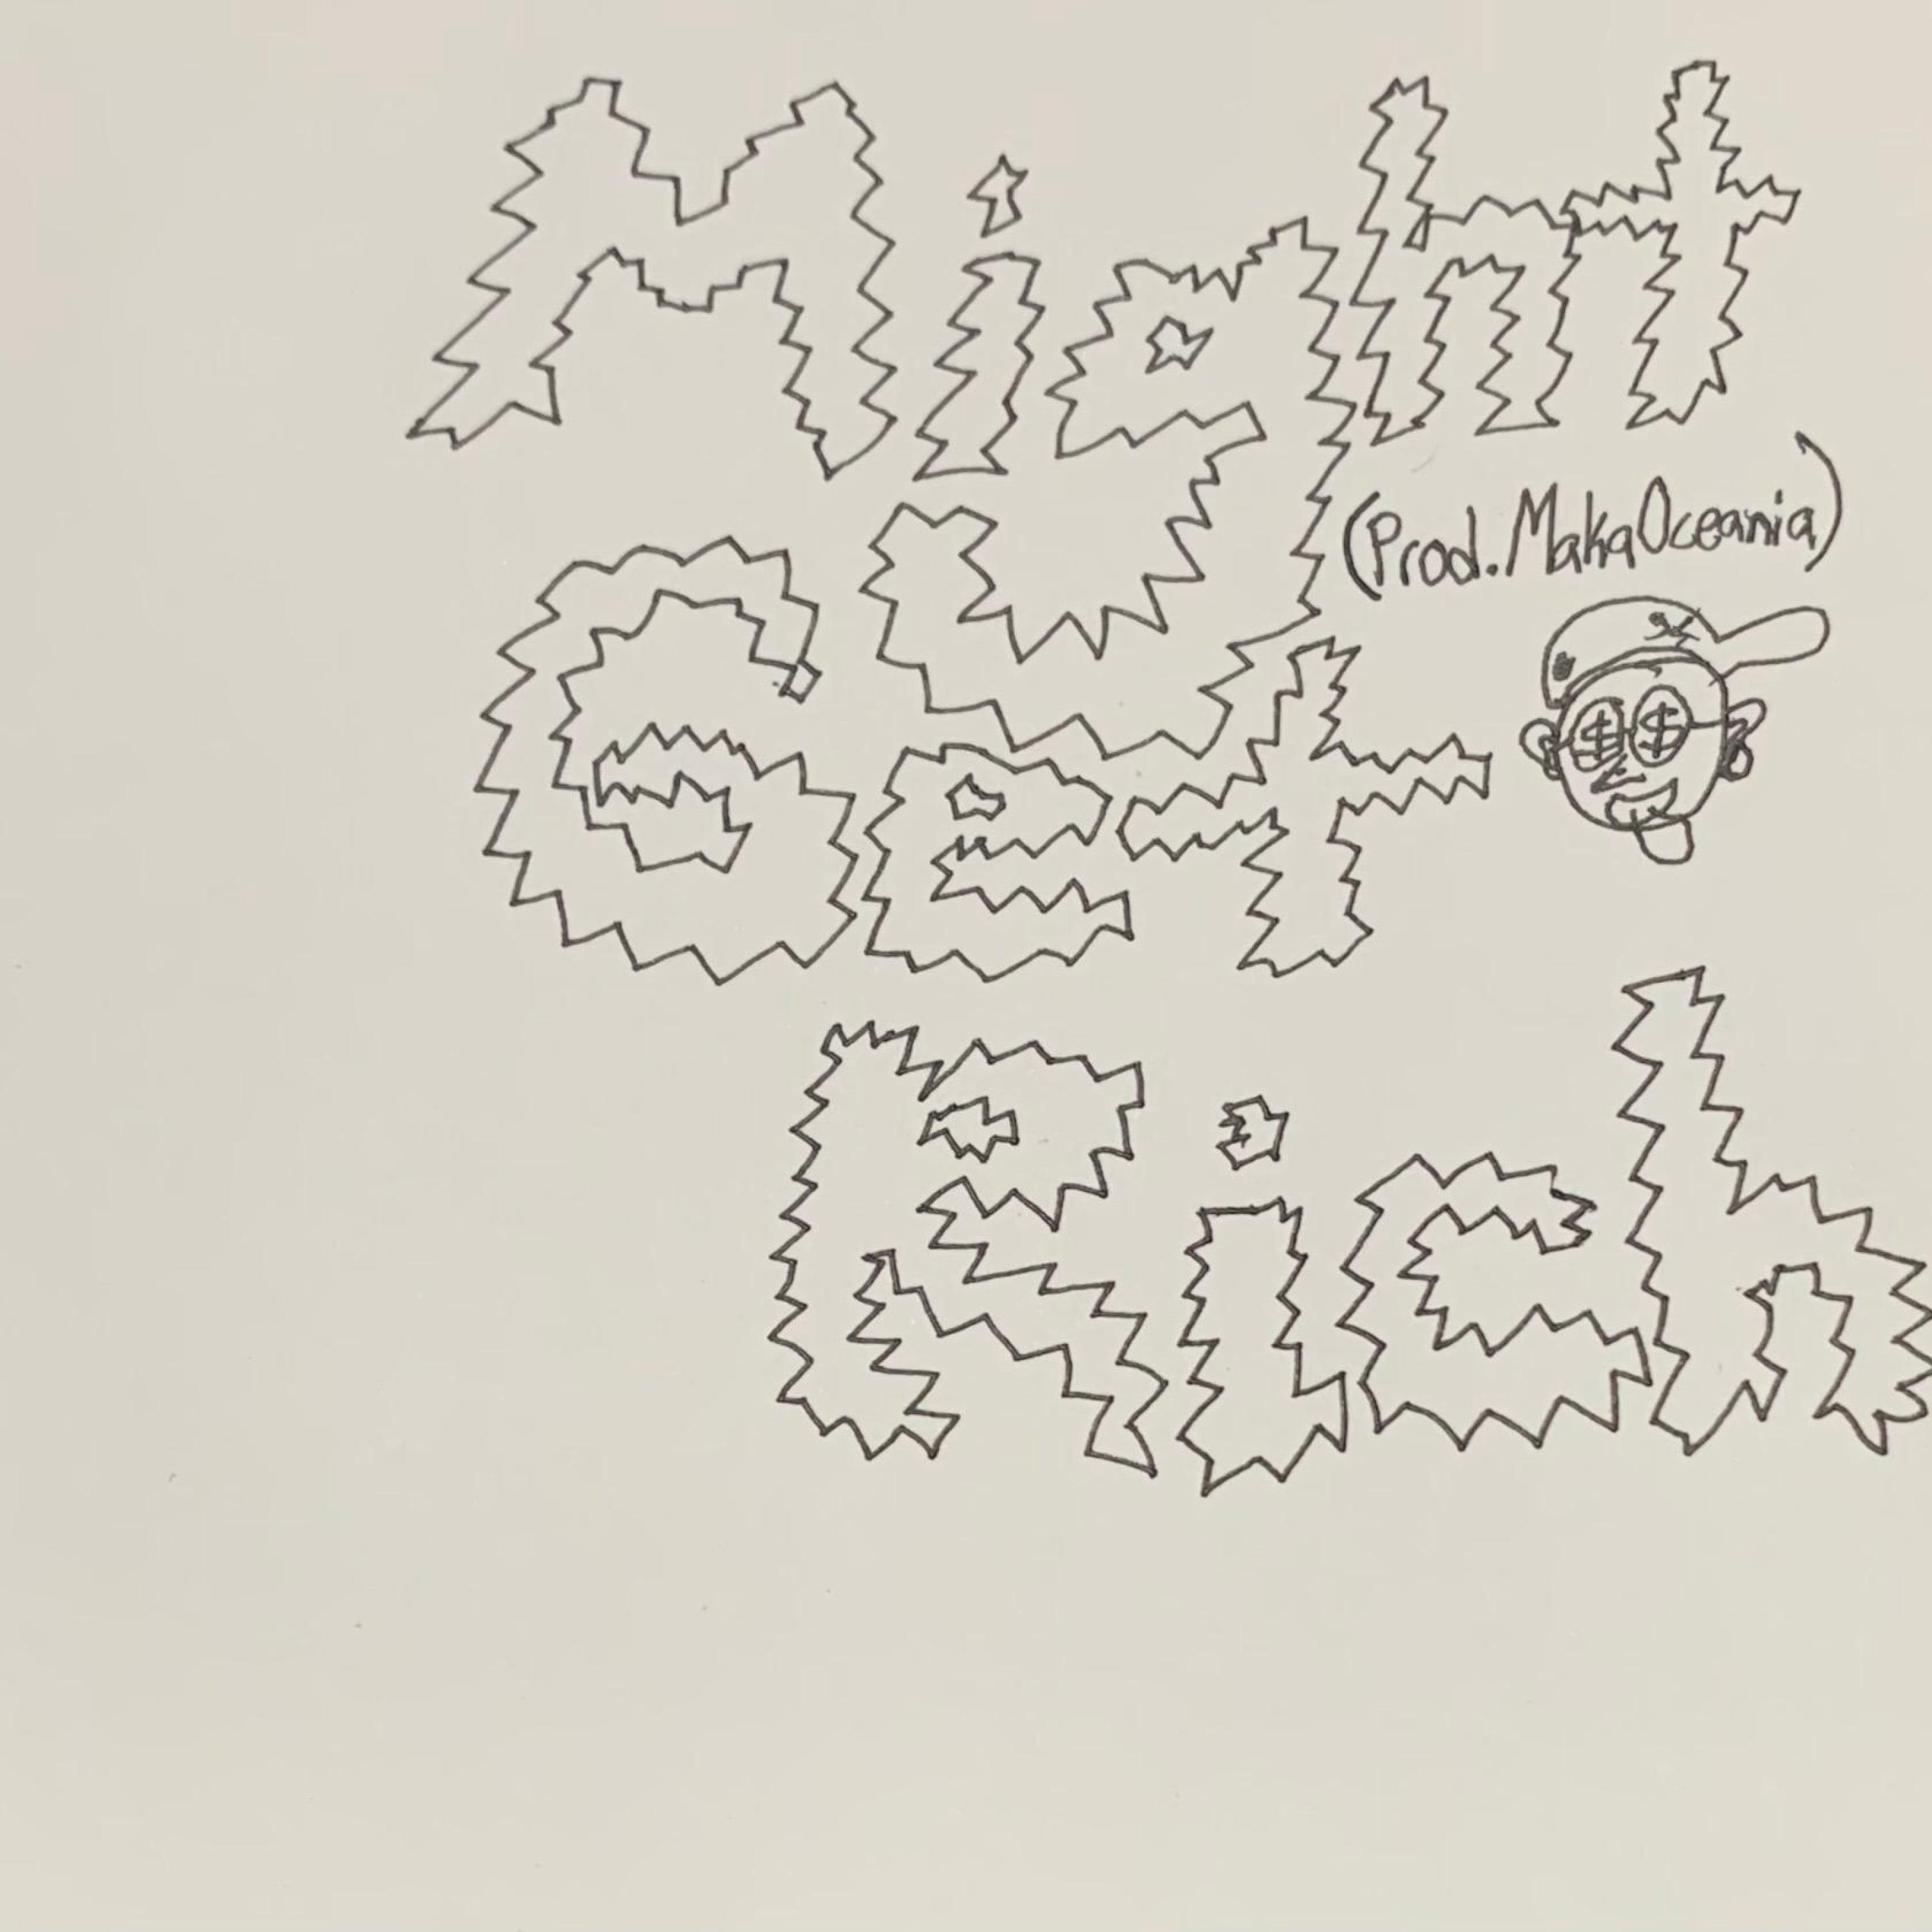 Might
(Prod. MakaOceania)
Get
$ $
Rich